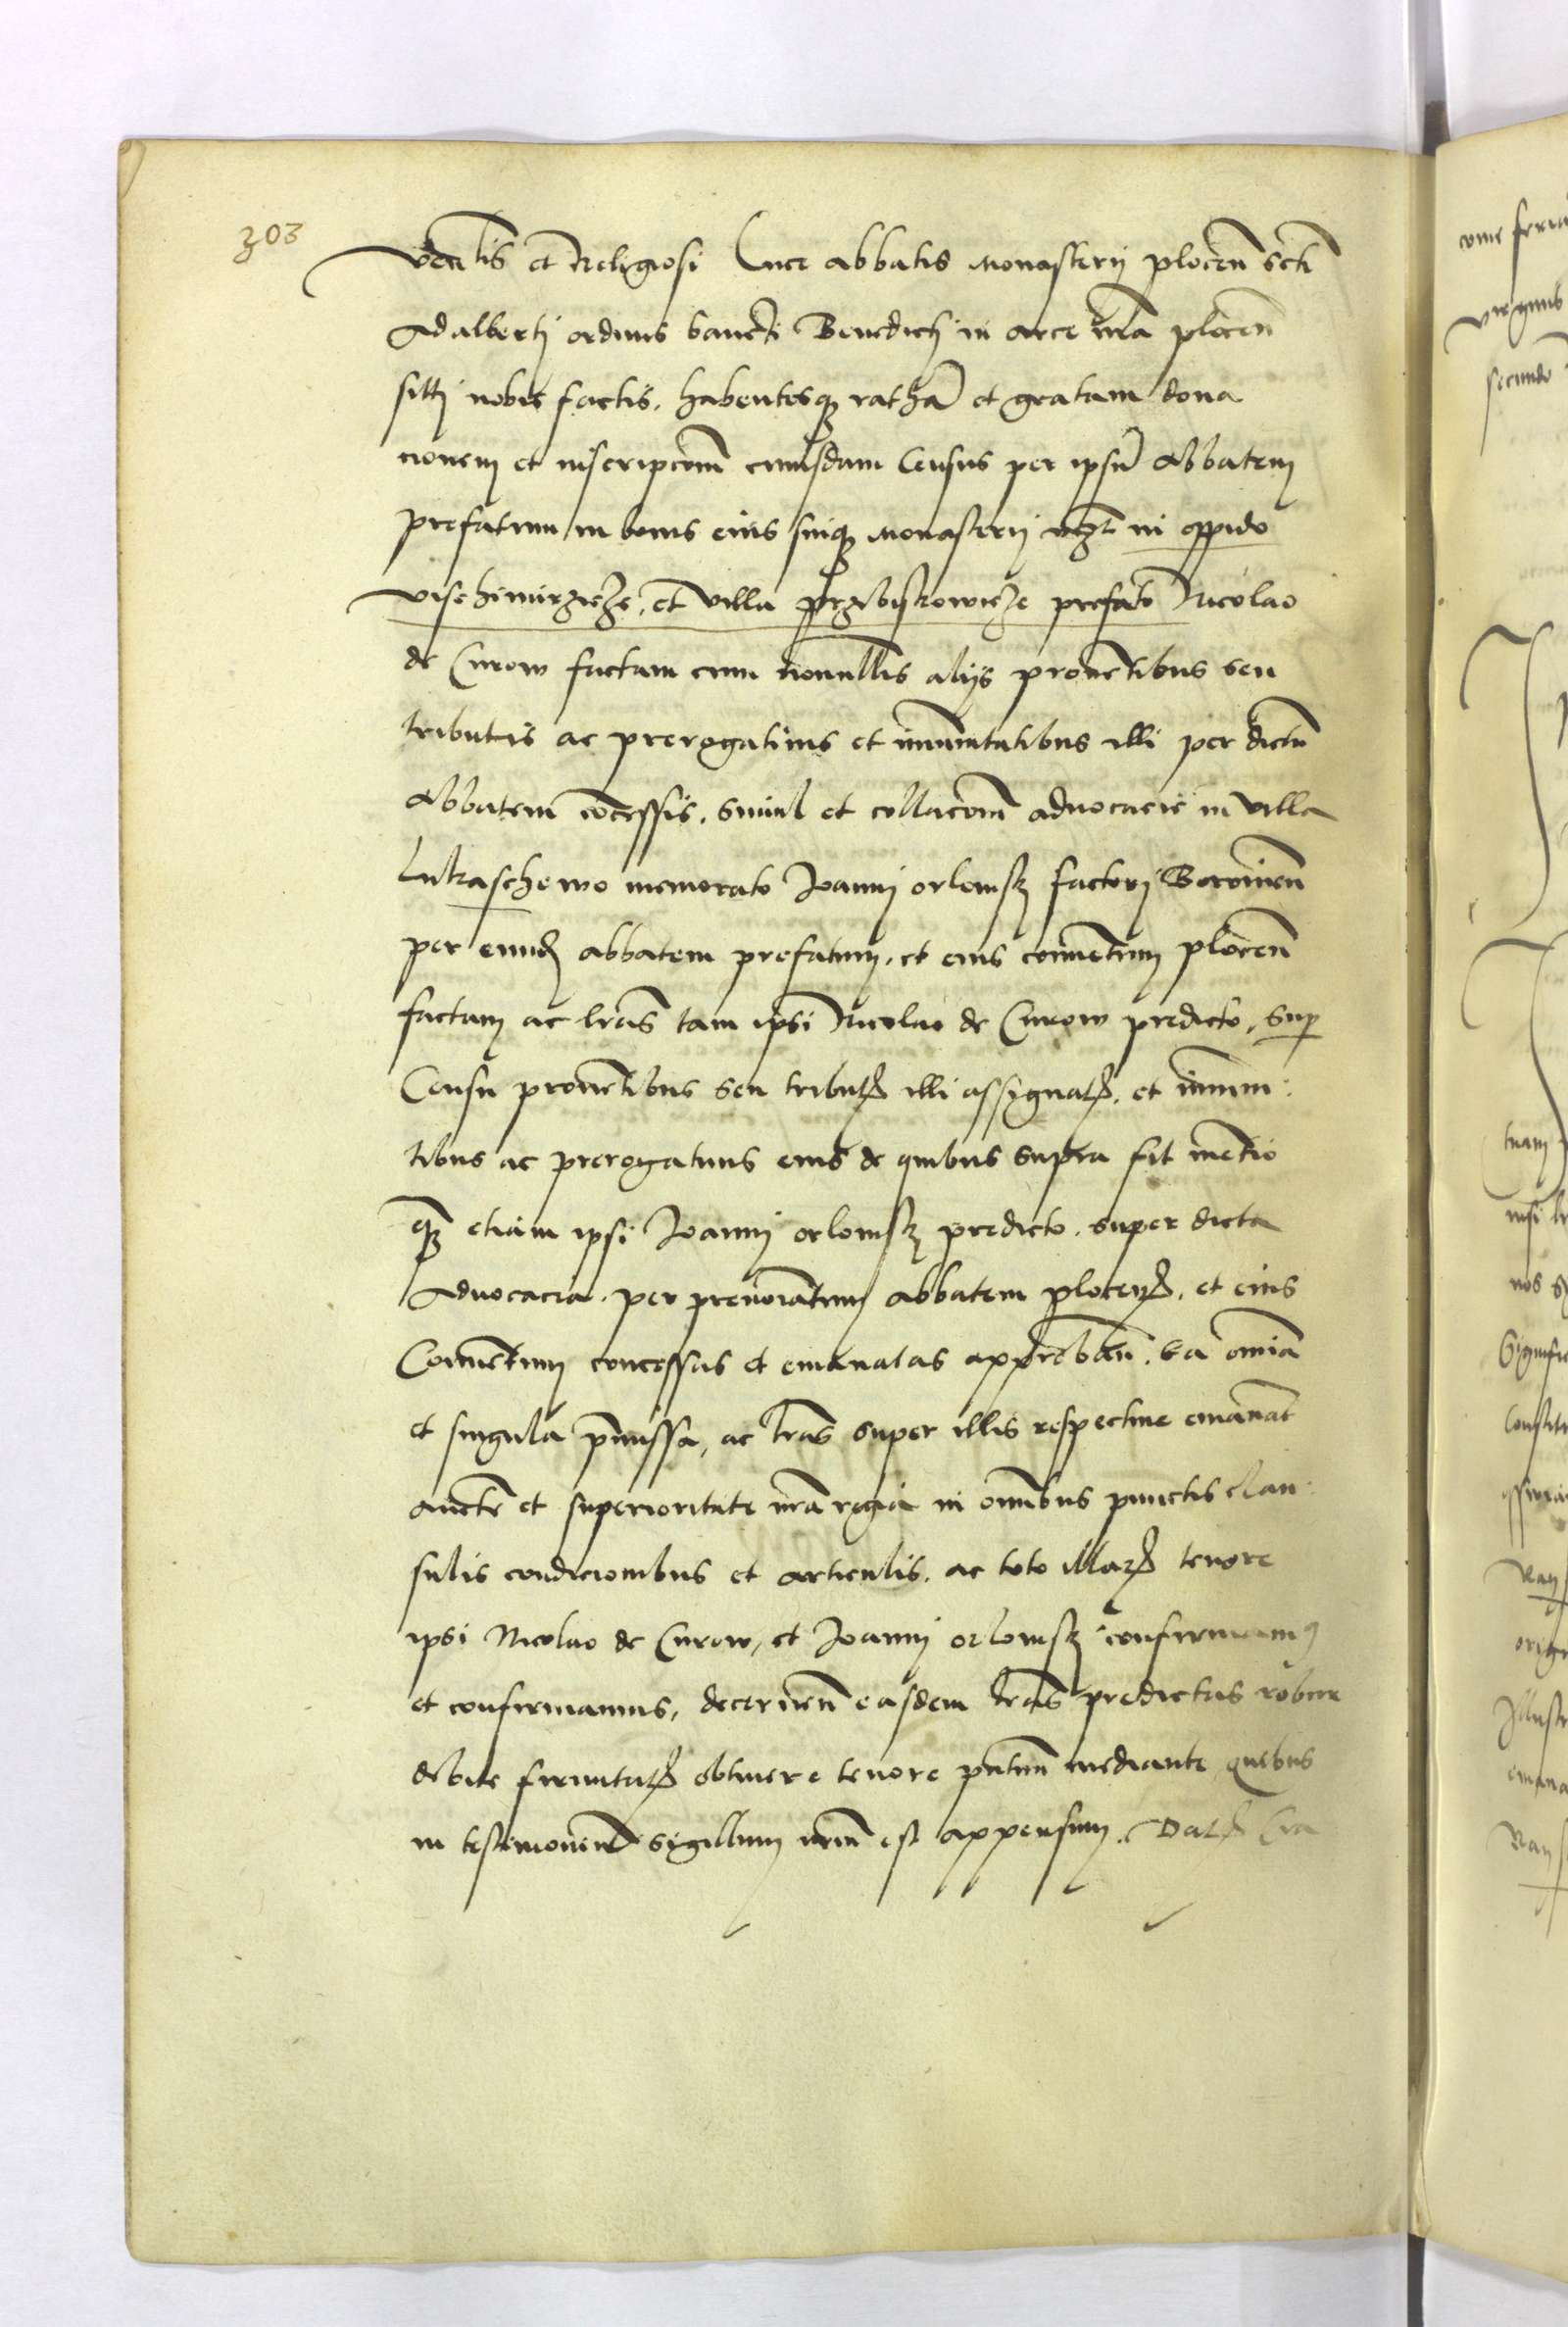 303
ventis et Religiosi Luce abbatis Monasterij plocen̄ scti
Adalberti ordinis Sancti Benedicti in arce nr̄a plocen̄
siti nobis factis, habentesq; ratha̅ et gratam dona
cionem et inscripcōnem cuiusdam Census per ipsu̅ Abbatem
prefatum in bonis eius suiq; Monasterij vcz in oppido
vischimirzicze, et villa przibiskowicze prefato Nicolao
de Curow factam cum nonnullis alijs proue̅tibus seu
tributis ac prerogatiuis et immunitatibus illi per dictu̅
Abbatem co̅cessis, simul et collacōnem aduocacie in villa
Lukaschewo memorato Joanni orlowsk factori
per eund̅ abbatem prefatum, et eius conuentum plocen̄
factam ac lr̄as tam ipsi Nicolao de Curow predicto, sup
Censu proue̅tibus seu tribut illi assignat, et immuni:
tibus ac prerogatiuis eius de quibus supra fit me̅tio
q̅ etiam ipsi Joanni orlowsk predicto, super dicta
Aduocacia, per prenoīatum abbatem plocen̄, et eius
Conue̅tum concessas et emanatas approban̄, ea om̄ia
et singula p̄missa, ac lr̄as super illis respectiue emanat
aucte et superioritate nr̄a regia in omnibus punctis clau:
sulis condicionibus et articulis, ac toto illar̄ tenore
ipsi Nicolao de Curow, et Joanni orlowsk confirmam9
et confirmamus, decernen̄ easdem lr̄as predictas robur
debite firmitat obtinere tenore pn̄tium mediante quibus
in testimoniu̅ sigillum nr̄m est appensum. Dat Cra
come feria
secundo
tuam
nisi
nos
Signifi
Constit
Illustr
emana